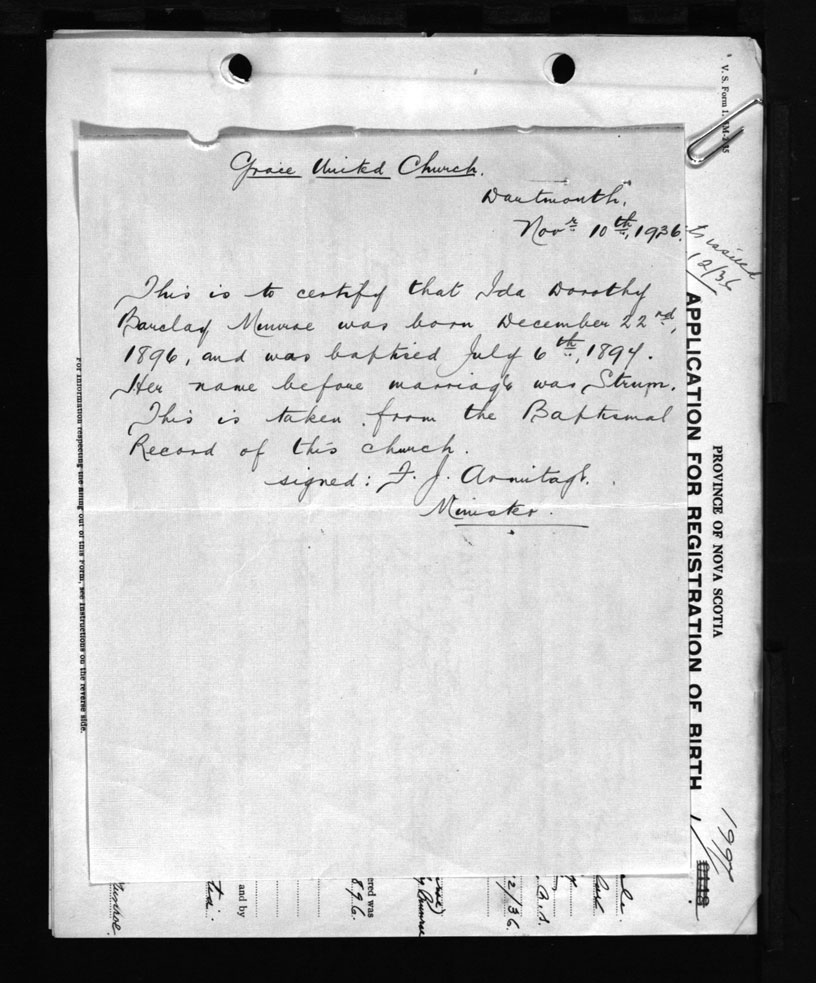 Grace United Church.
Dartmouth,
Novr 10th, 1936.
This is to certify that Ida Dorothy
Barclay Munroe was born December 22nd,
1896, and was baptised July 6th, 1897.
Her name before marriage was Strum.
This is taken from the Baptismal
Record of this church.
signed: F. J. Armitage.
Minister.
V. S. Form 1.
12/36
PROVINCE OF NOVA SCOTIA
APPLICATION FOR REGISTRATION OF BIRTH
For information respecting the filling out of this Form, see instructions on the reverse side.
B.S.
2/36.
ered was
896.
and by
Munroe.